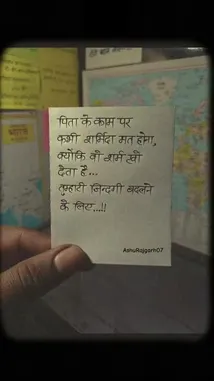 पिता के काम पर
कभी शर्मिंदा मत होना,
क्योंकि वो शर्म खो
देता है...
तुम्हारी जिन्दगी बदलने
के लिए...!!
AshuRajgarh07